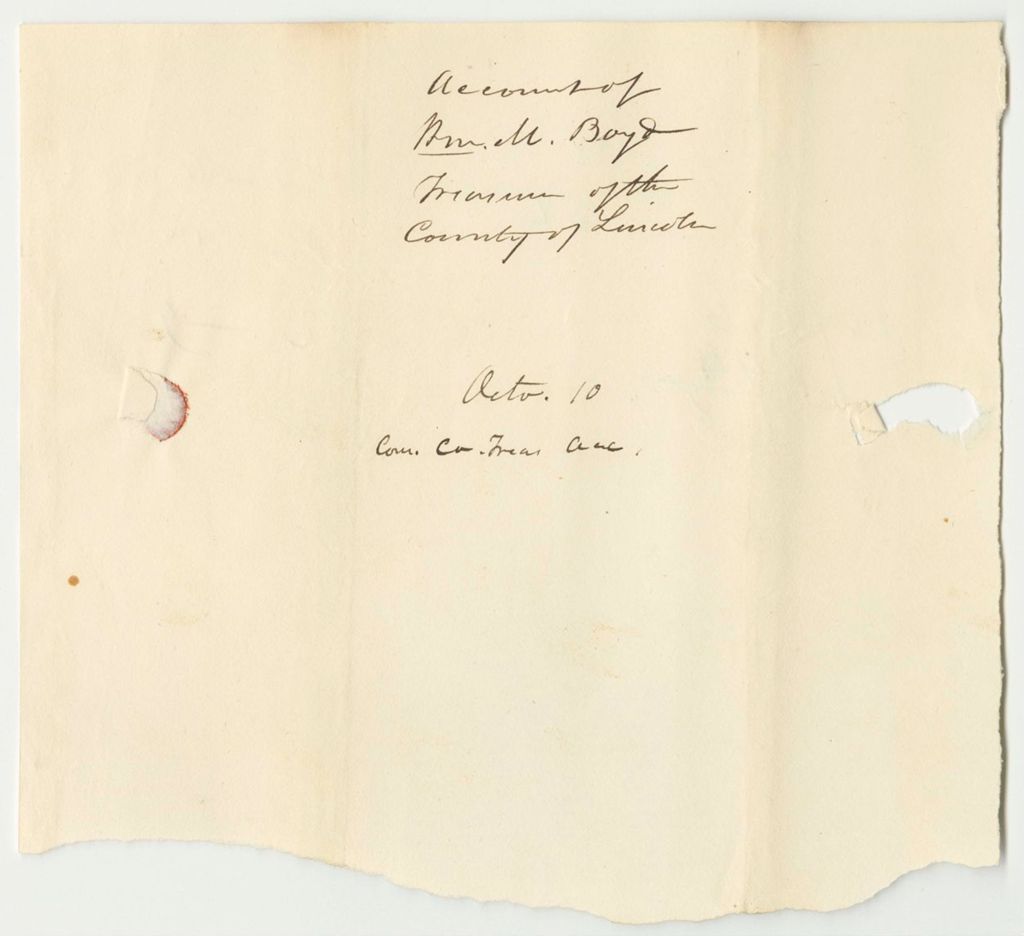 Account of
Wm. M. Boyd
Treasurer of the
County of Lincoln
Octo. 10
Com. Co. Treas Acc.